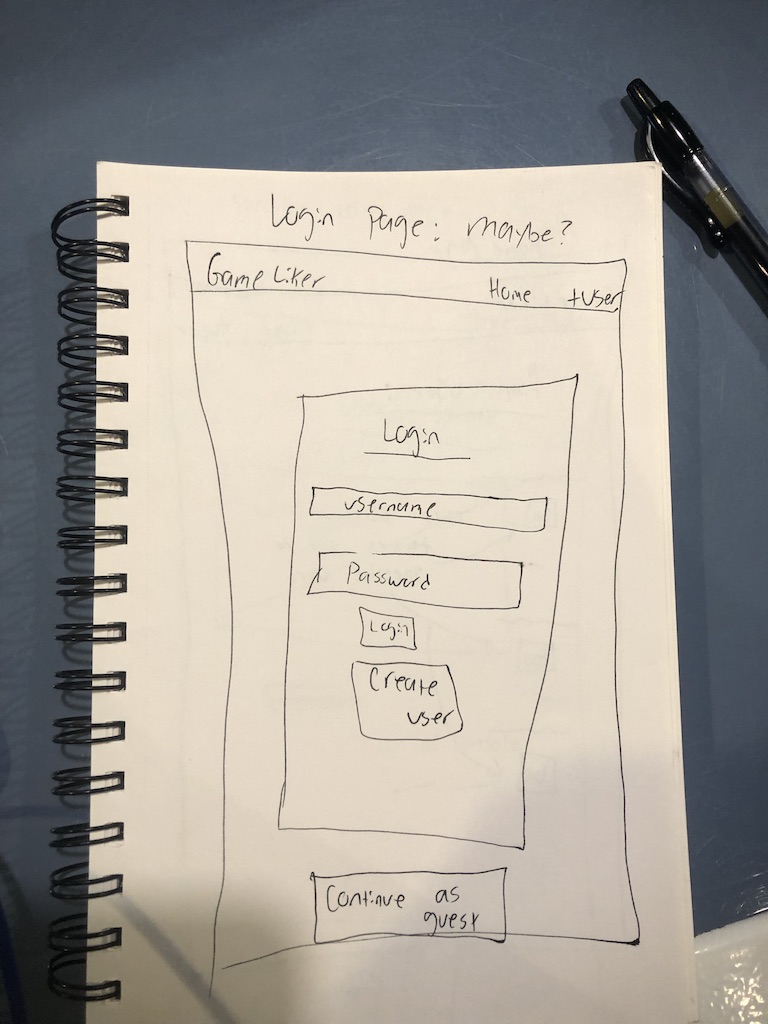 Login Page: maybe?
Game Liker
Home +User
Login
username
Password
Login
Create
user
Continue as
guest